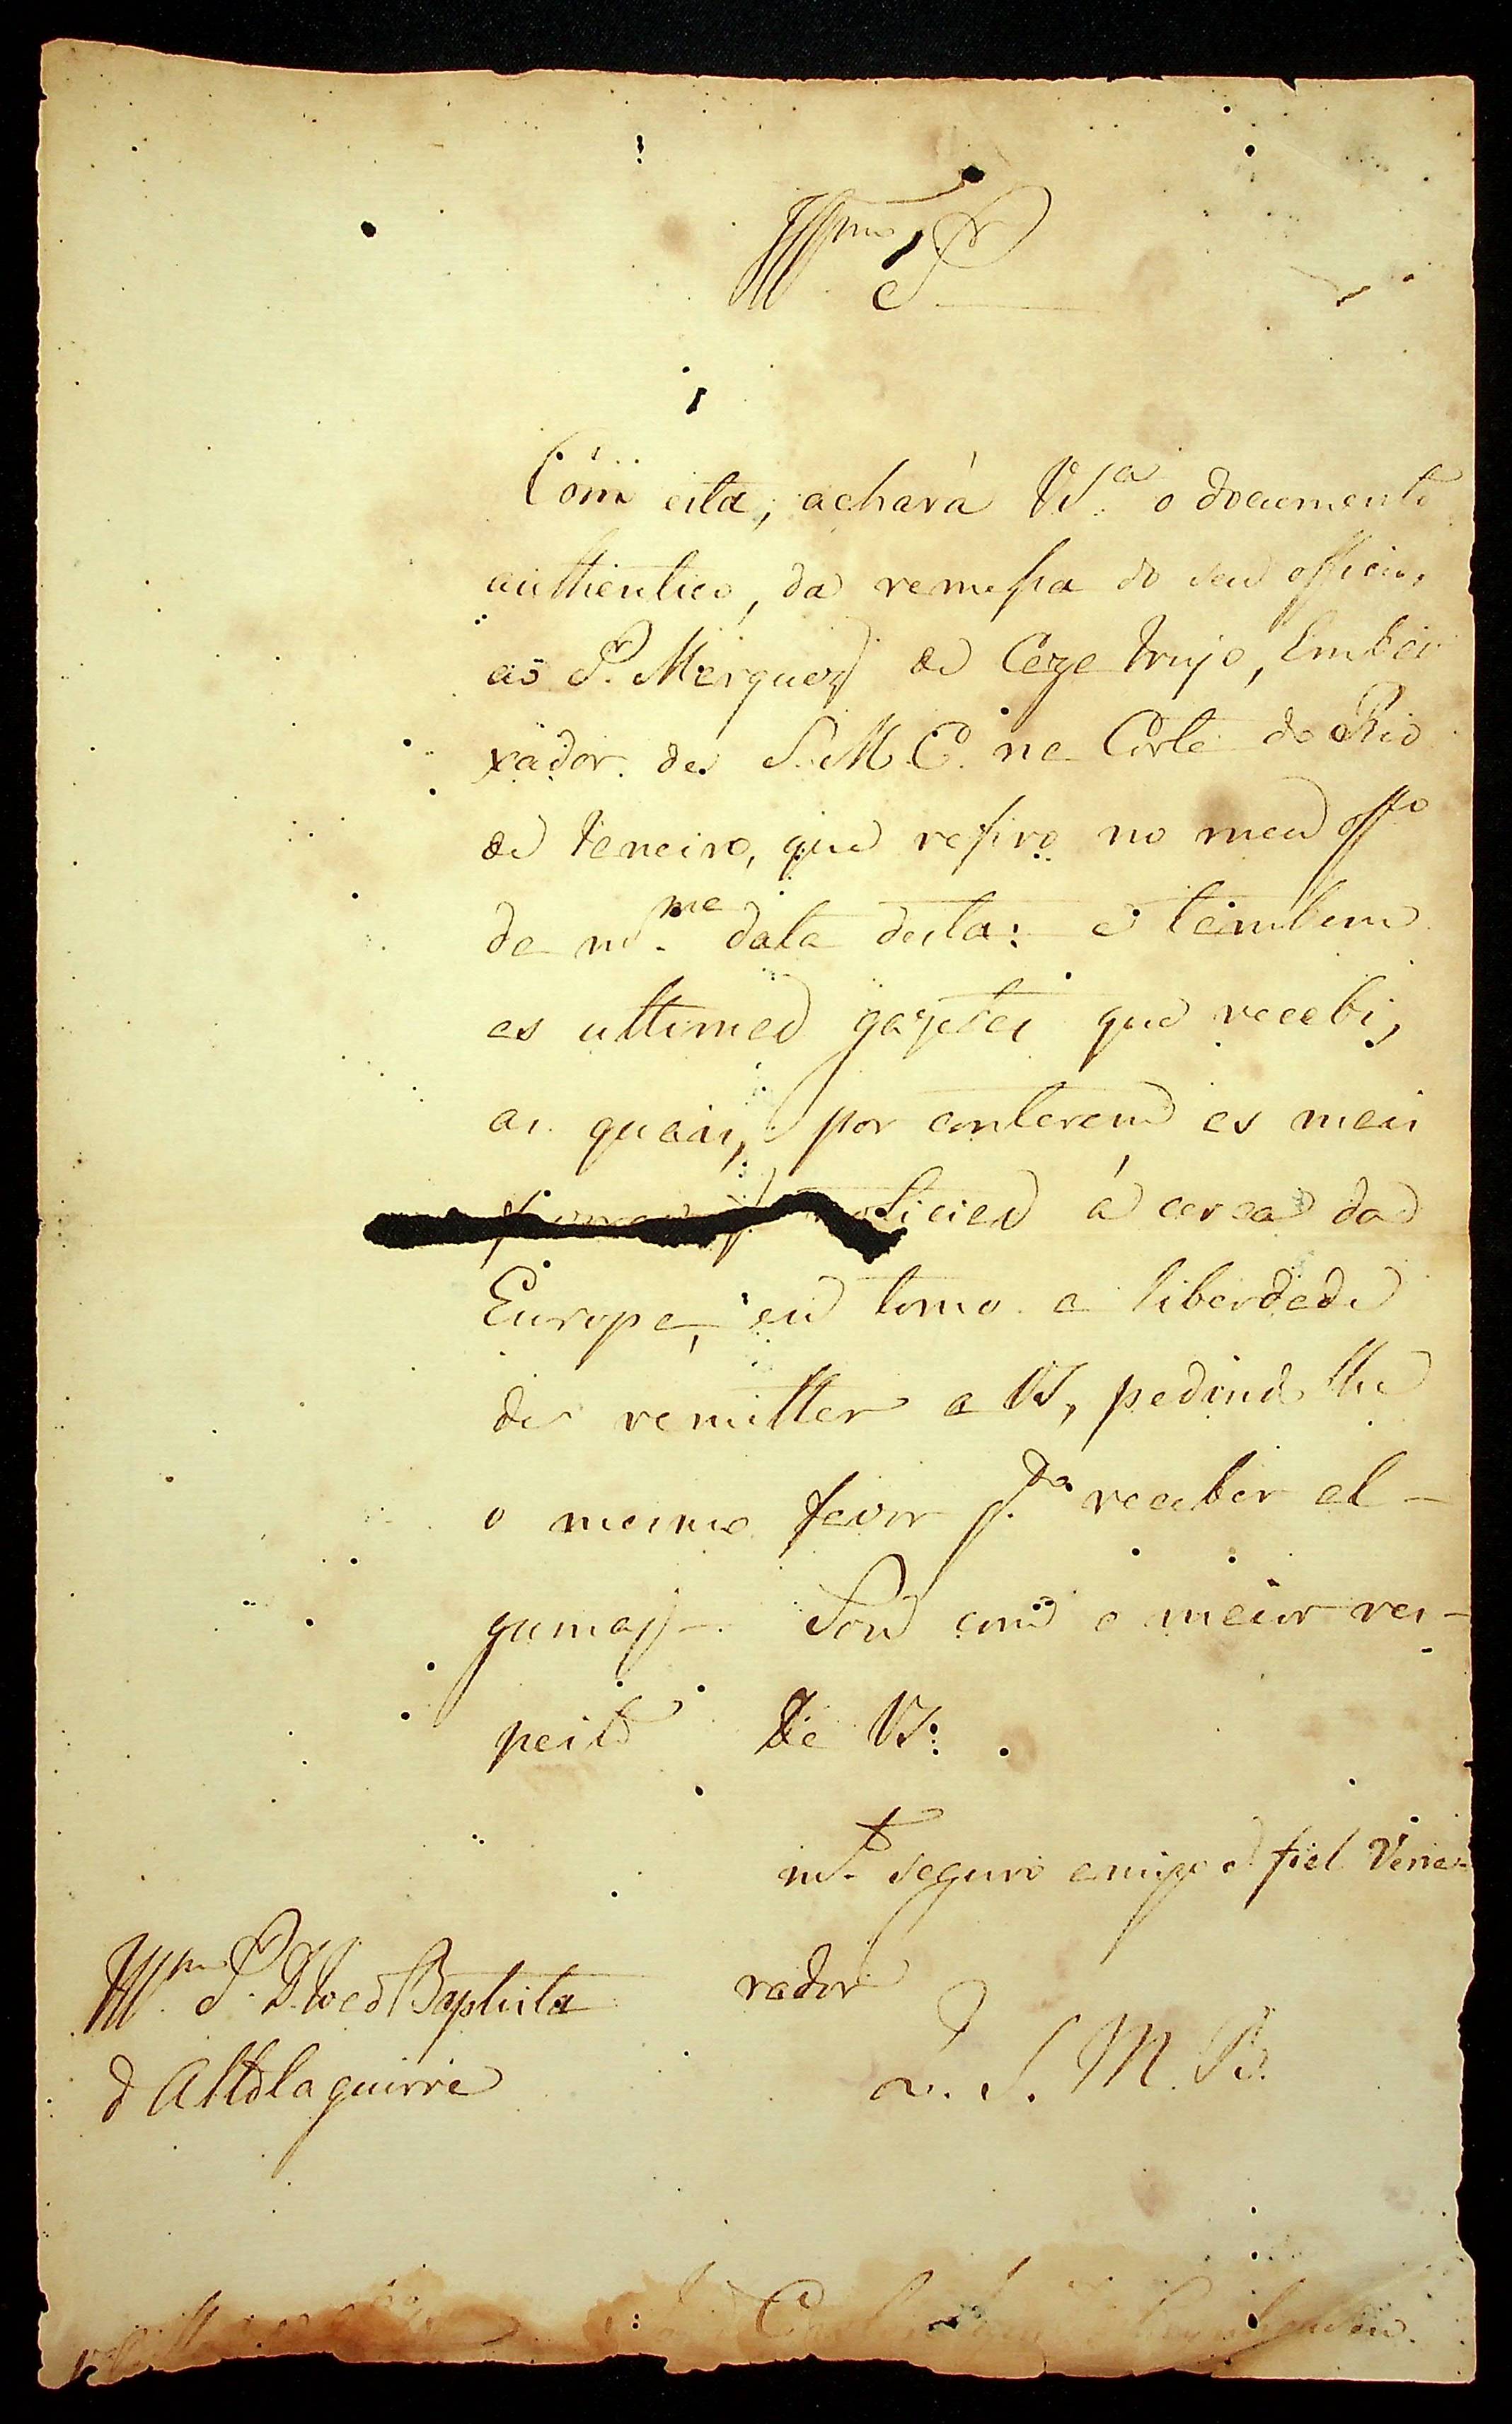 Illmo Sr
Com esta, achará VSa o documento
authentico, da remessa do seu officio,
ao Sr. Marquez de Caza Irujo, Embai
xador de S. M. C. na Corte do Rio
de Janeiro, que refiro no meu offo
da mma data desta: e tambem
as ultimas gazetas que recebi,
as quais, por conterem as mais
noticias á cerca da
Europa, eu tomo a liberdade
de remitter a VS, pedindo lhe
o mesmo favor se receber al-
gumas. Sou com o maior res-
peito de VS.
mto seguro amigo e fiel Vene-
rador
Illmo Sr. D. Joao Baptista
d Altolaguirre
Q. S. M. B.